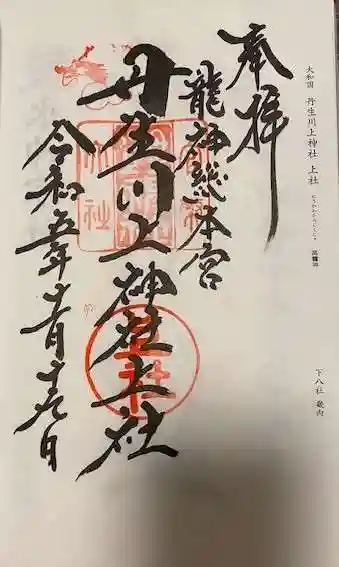 大和国 丹生川上神社 上社
下八社 畿内
奉拝
龍神総本宮
丹生川上神社上社
令和五年十一月十九日
上社